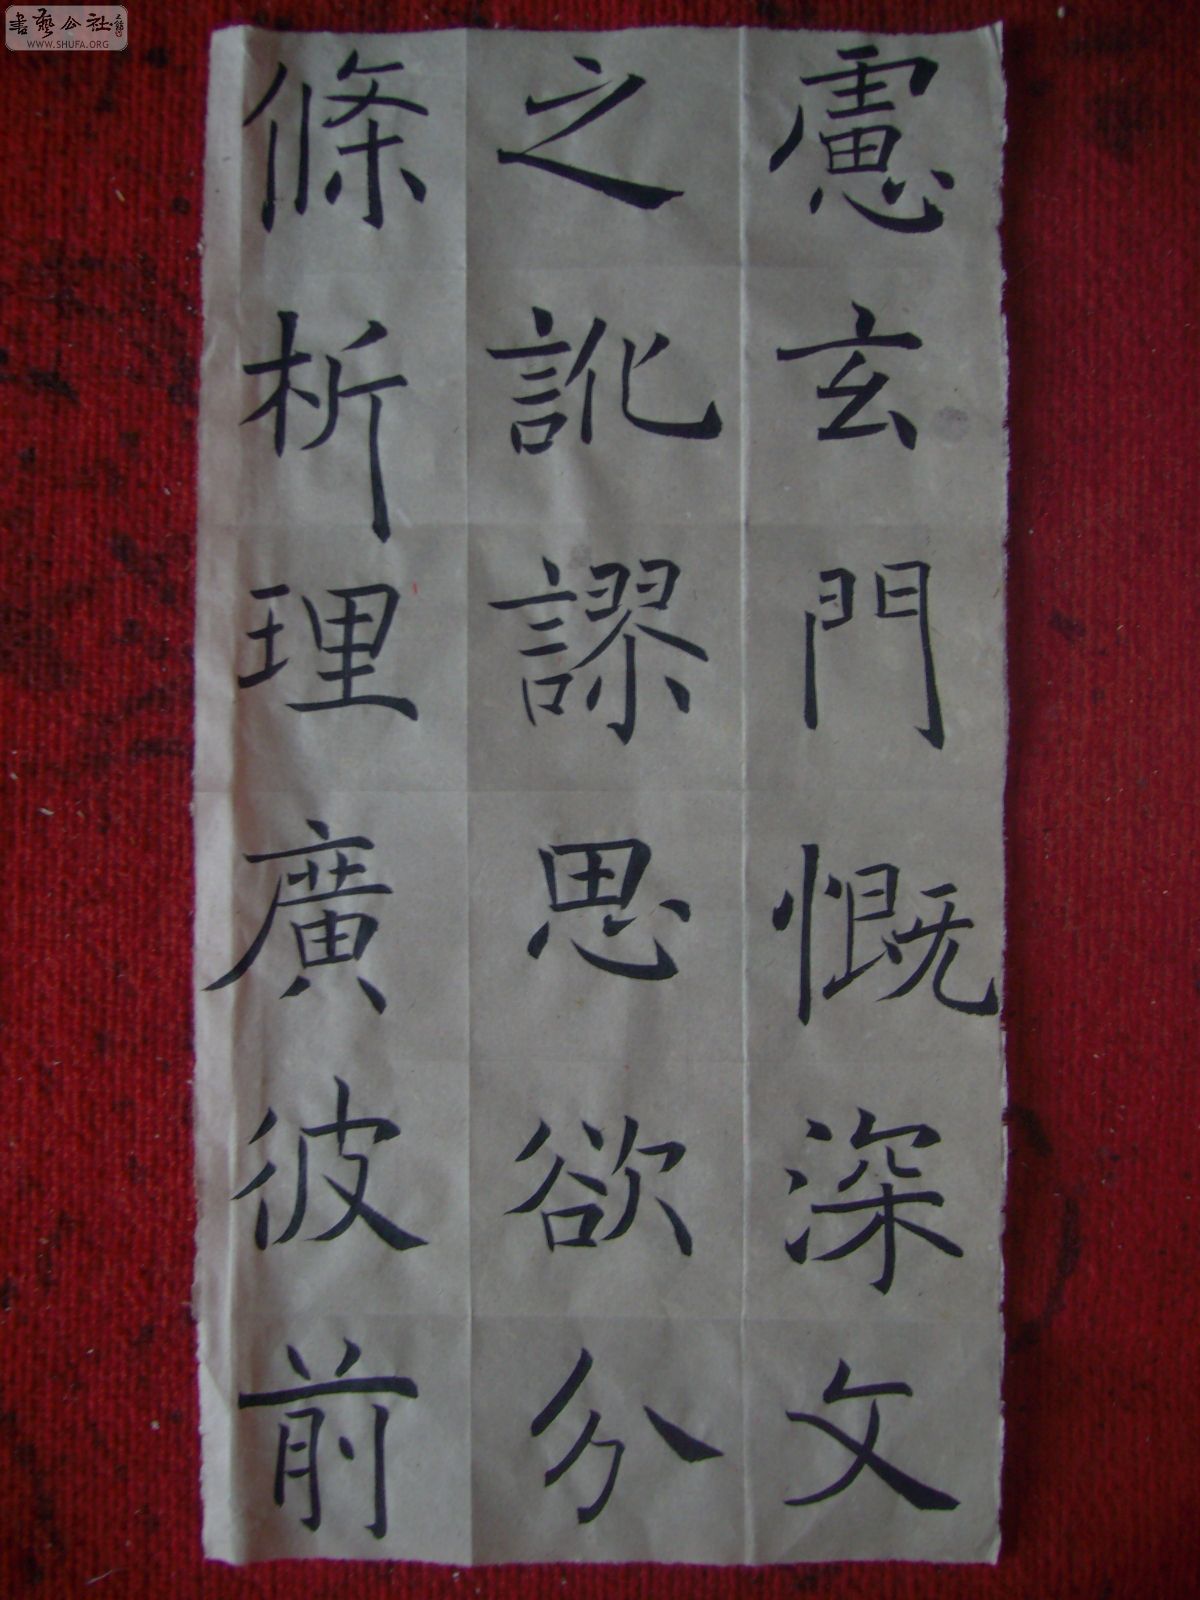 慮玄門慨深文
之訛謬思欲分
條析理廣彼前
書藝公社
WWW.SHUFA.ORG